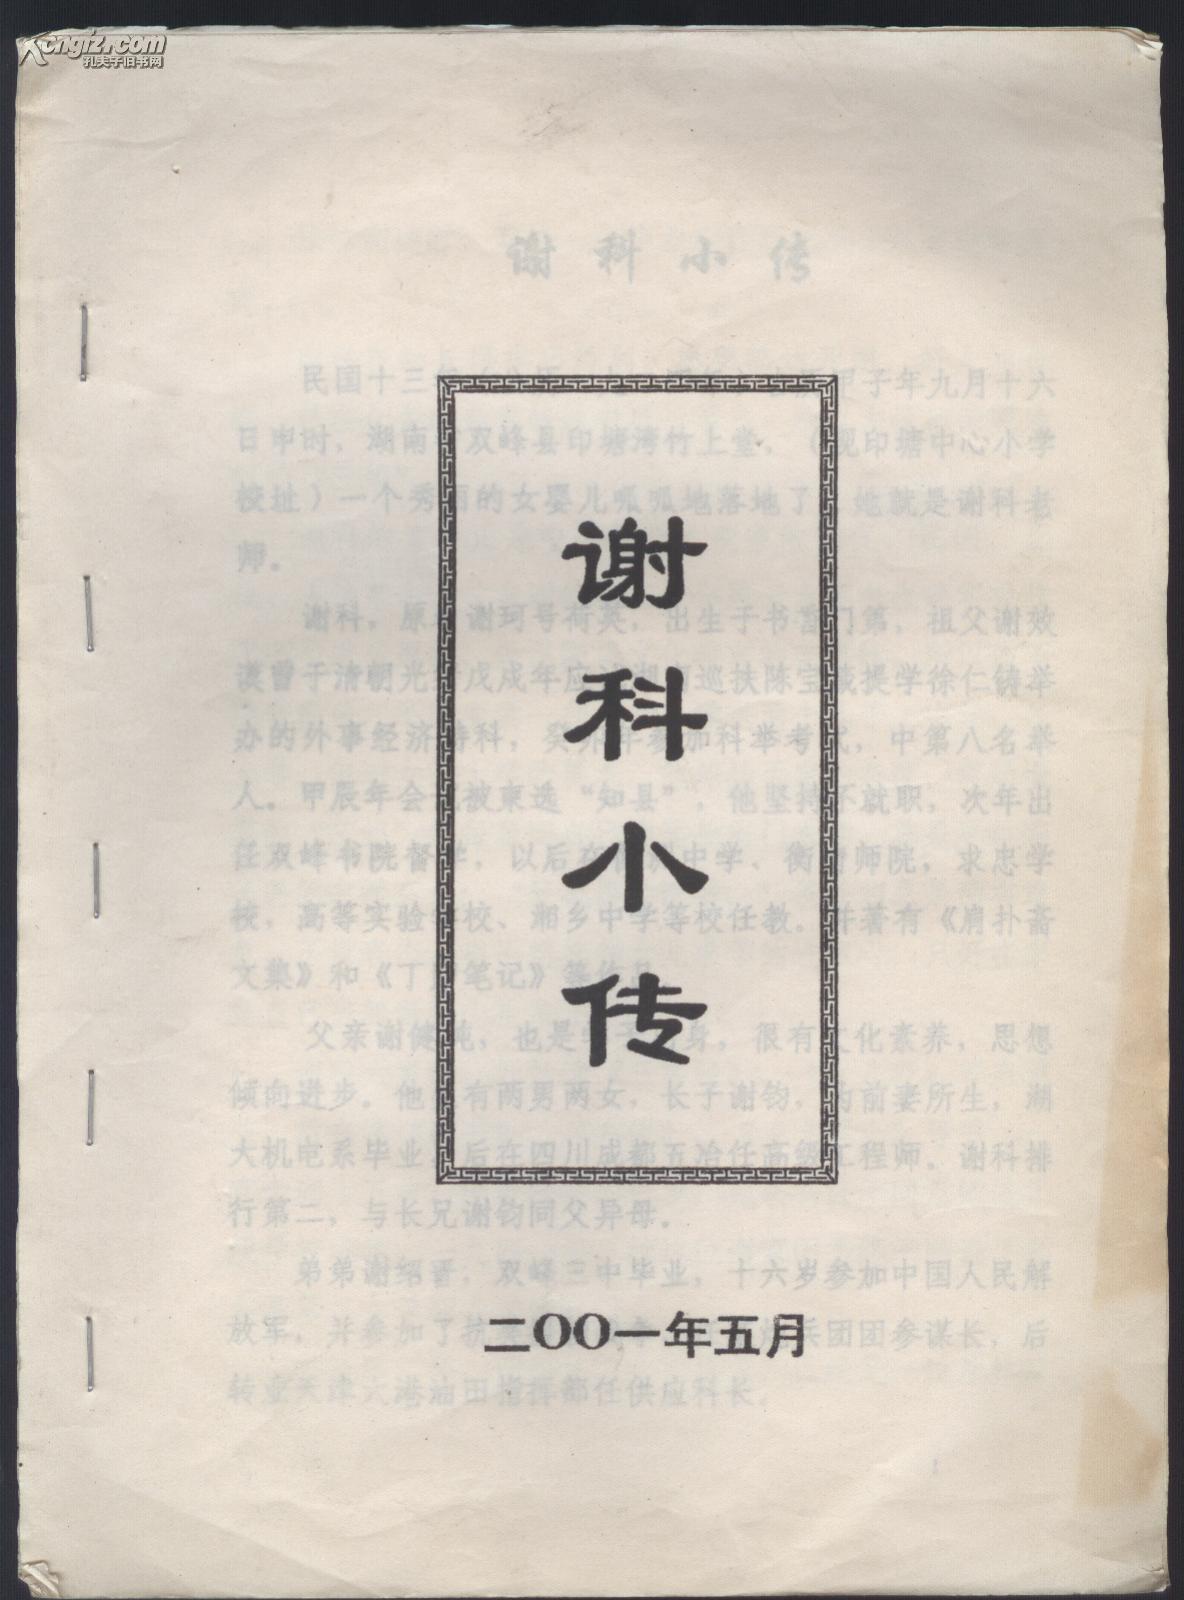 Kongfz.com
孔夫子旧书网
谢科小传
民国十三年 甲子年九月十六
日申时，湖南 双峰县印塘湾竹上堂，（现印塘中心小学
校址）一个秀 的女婴儿呱呱地落地了 她就是谢科老
师。
谢科，原 谢珂号荷英，出生于书 门第，祖父谢效
于清朝光 戊戌年应 巡扶陈宝 提学徐仁铸举
办的外事经济特科，癸卯年参加科举考 ，中第八名举
人。甲辰年会 被 选“知县”，他坚持不就职，次年出
任双峰书院督学，以后在 中学、衡 师院，求忠学
校，高等实验学校、湘乡中学等校任教。并著有《肩扑斋
文集》和《丁 笔记》等作品
父亲谢健 ，也是学 身，很有文化素养，思想
倾向进步。他 有两男两女，长子谢钧，为前妻所生，湖
大机电系毕业，后在四川成都五冶任高级工程师。谢科排
行第二，与长兄谢钧同父异母。
弟弟谢绍晋，双峰三中毕业，十六岁参加中国人民解
放军，并参加了抗 兵团团参谋长，后
转业天津大港油田指挥部任供应科长。
1
谢
科
小
传
二〇〇一年五月